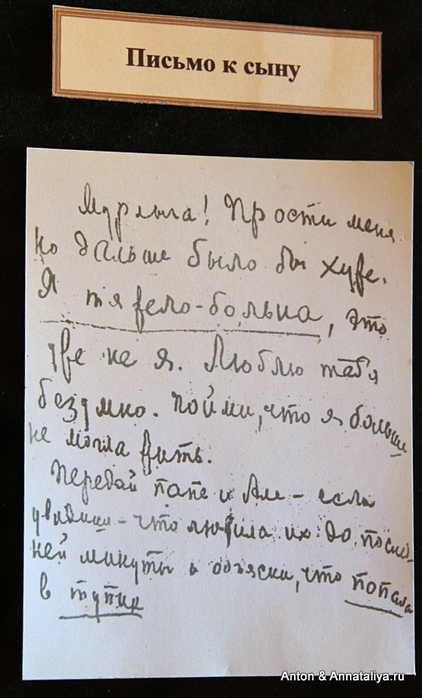 Письмо к сыну
Мурлыга! Прости меня
но дальше было бы хуже.
Я тяжело-больна, это
уже не я. Люблю тебя
безумно. Пойми, что я больше
не могла жить.
Передай папе и Але – если
увидишь – что любила их до послед-
ней минуты и объясни, что попала
в тупик
Anton & Annataliya.ru